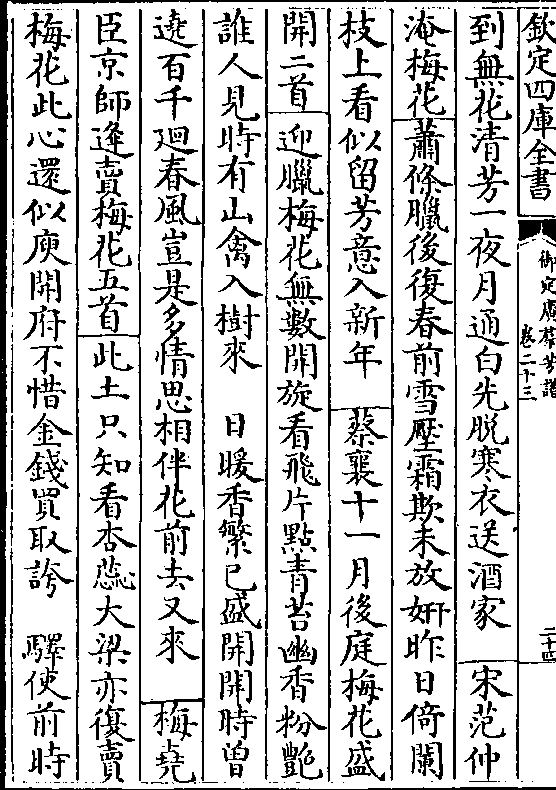 欽定四庫全書
御定廣羣芳譜
卷二十三
二十四
到無花清芳一夜月通白先脱寒衣送酒家 宋范仲
淹梅花蕭條臘後復春前雪壓霜欺未放妍昨日倚闌
枝上看似留芳意入新年 蔡襄十一月後庭梅花盛
開二首 迎臘梅花無數開旋看飛片點青苔幽香粉艷
誰人見時有山禽入樹來 日暖香繁已盛開開時曽
遶百千廻春風豈是多情思相伴花前去又來 梅堯
臣京師逢賣梅花五首 此土只知看杏蘂大梁亦復賣
梅花此心還似庾開府不惜金錢買取誇 驛使前時